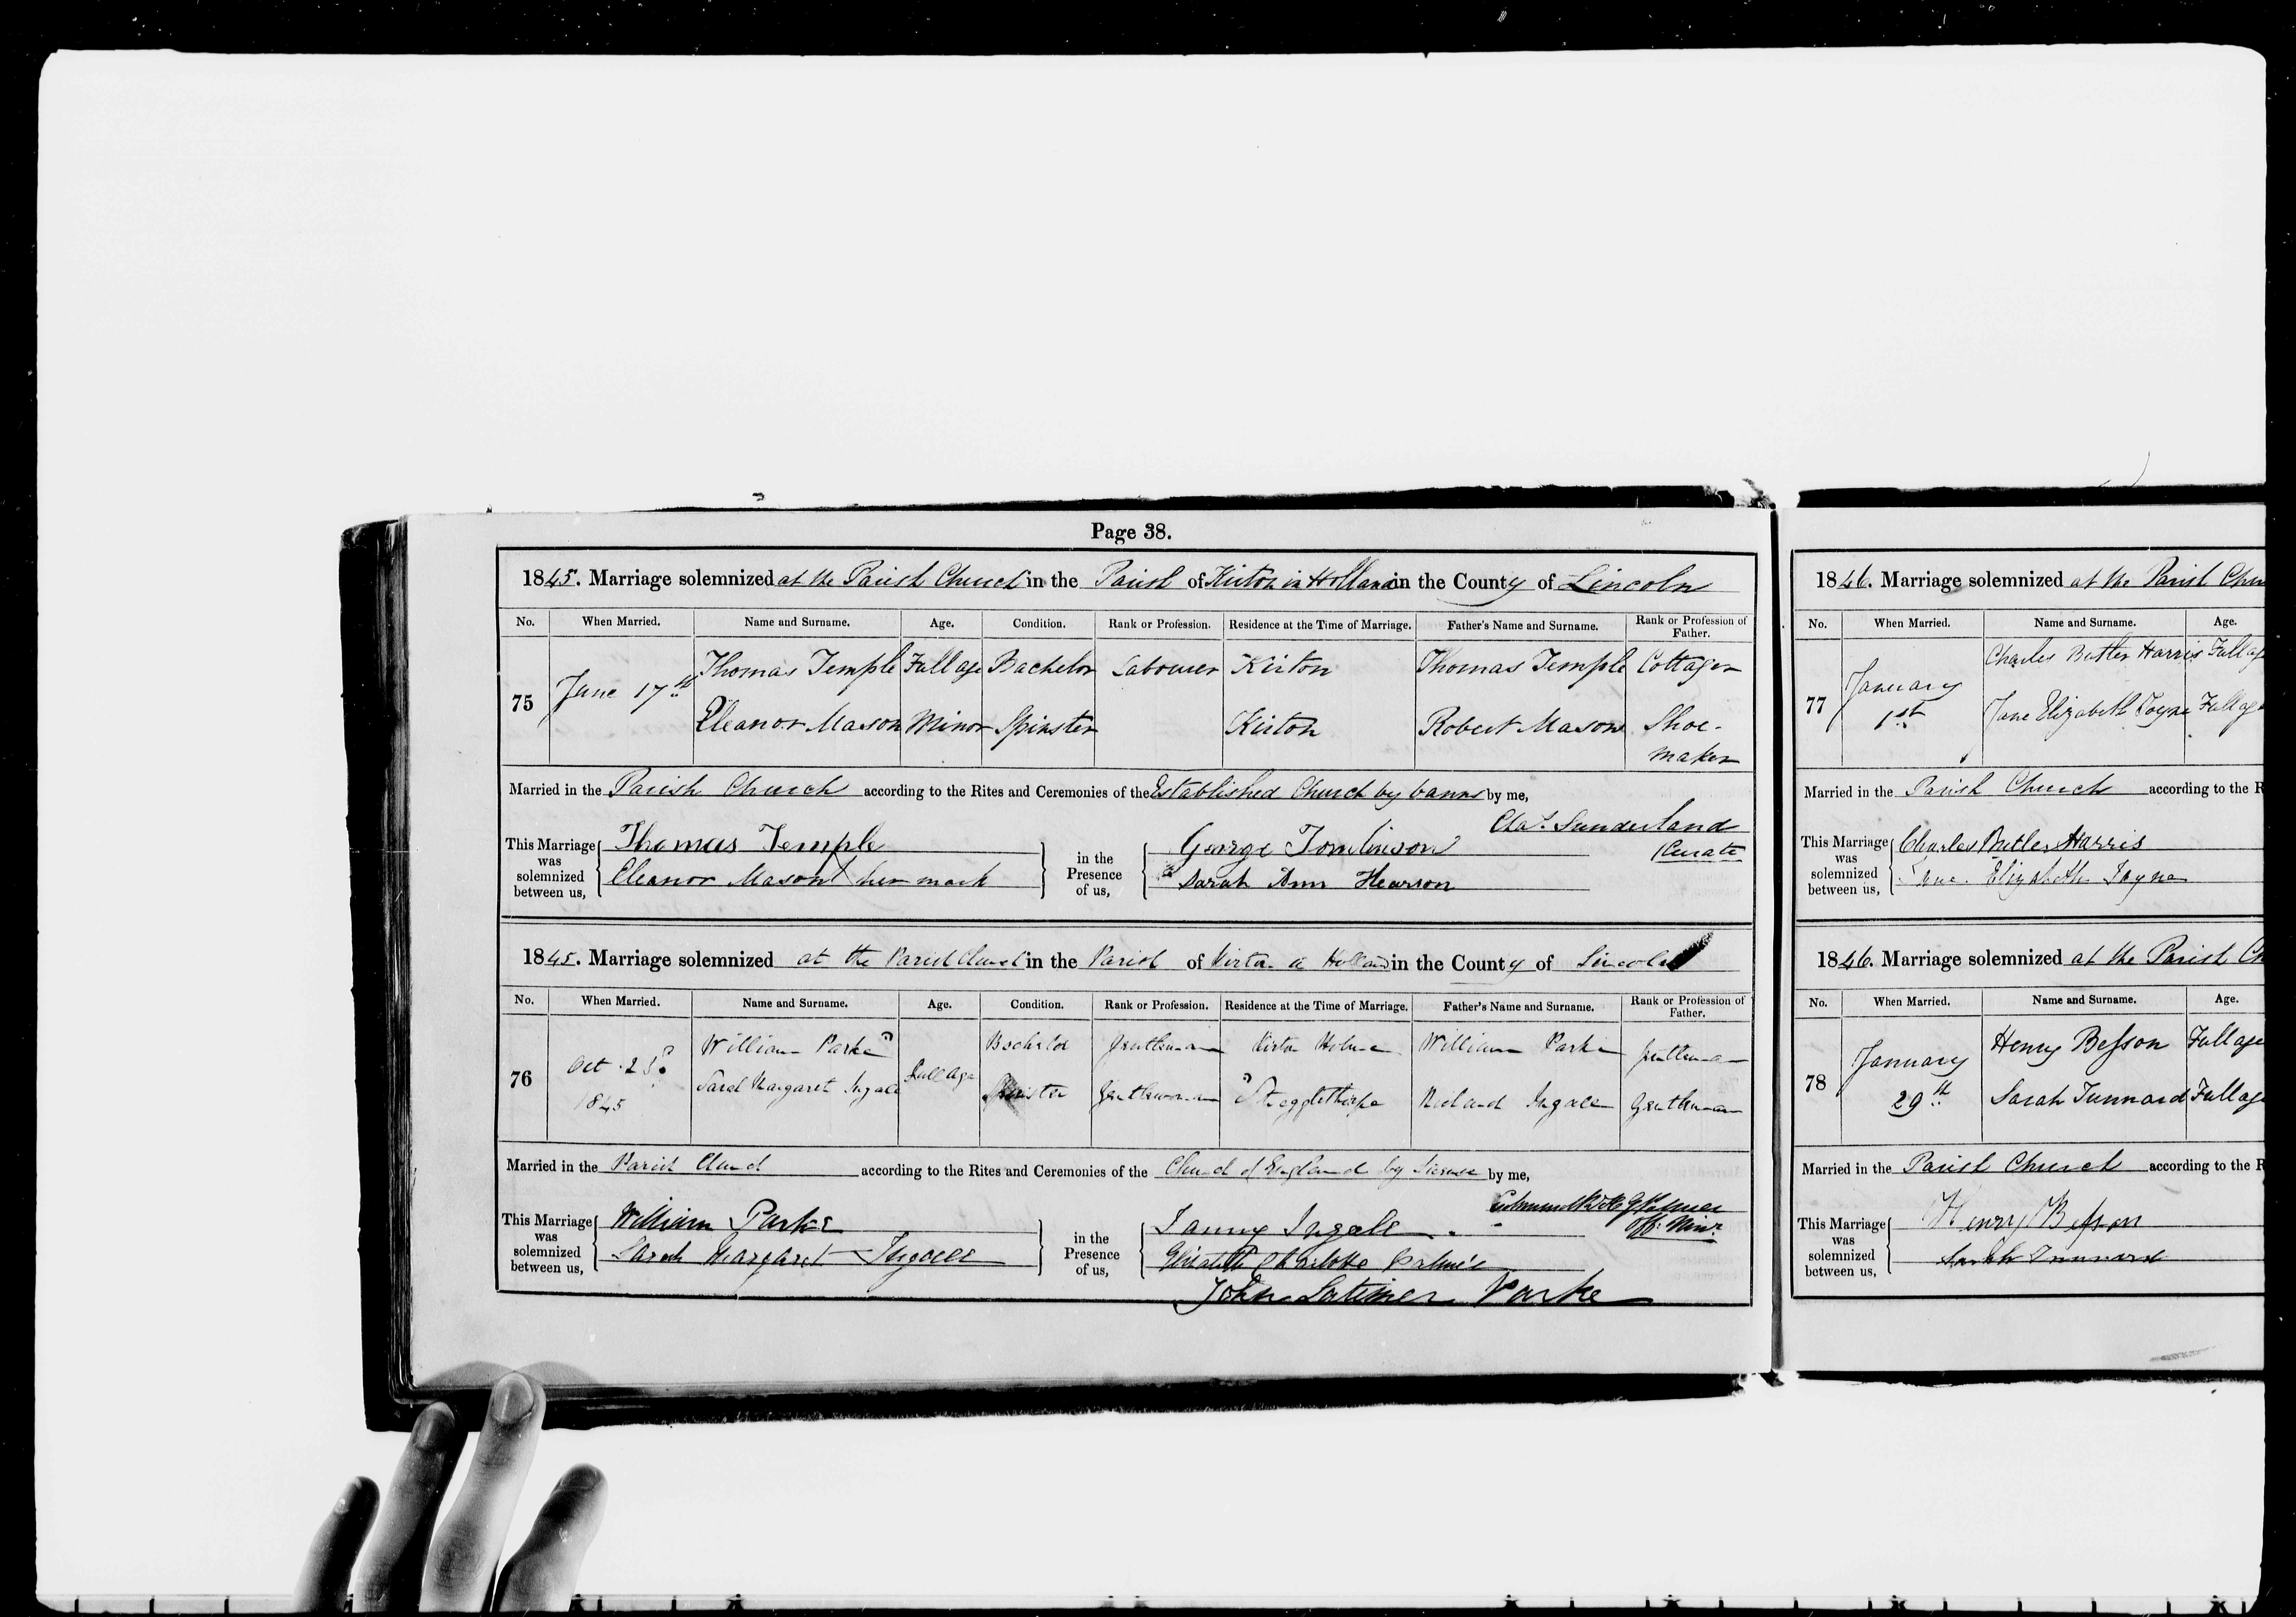 Page 38.
1845. Marriage solemnized at the Parish Church in the Parish of Kirton in Holland in the County of Lincoln
No. When Married. Name and Surname. Age. Condition. Rank or Profession. Residence at the Time of Marriage. Father's Name and Surname. Rank or Profession of Father.
75 June 17th Thomas Temple Full age Bachelor Labourer Kirton Thomas Temple Cottager
Eleanor Mason Minor Spinster Kirton Robert Mason Shoe-
maker
Married in the Parish Church according to the Rites and Ceremonies of the Established Church by banns by me,
Chas. Sunderland
Curate
This Marriage was solemnized between us, Thomas Temple
Eleanor Mason X her mark
in the Presence of us, George Tomlinson
Sarah Ann Hearson
1845. Marriage solemnized at the Parish Church in the Parish of Kirton in Holland in the County of Lincoln
No. When Married. Name and Surname. Age. Condition. Rank or Profession. Residence at the Time of Marriage. Father's Name and Surname. Rank or Profession of Father.
76 Oct. 1845 William Parke Full Age Bachelor Gentleman Kirton Holme William Parke Gentleman
Sarah Margaret Ingall Spinster Gentlewoman Stragglethorpe Richard Ingall Gentleman
Married in the Parish Church according to the Rites and Ceremonies of the Church of England by License by me,
Off. Minr.
This Marriage was solemnized between us, William Parke
Sarah Margaret Ingall
in the Presence of us, Fanny Ingall
Elizabeth Charlotte
John Latimer Parke
1846. Marriage solemnized at the Parish Chu
No. When Married. Name and Surname. Age.
77 January 1st Charles Butler Harris Full ag
Jane Elizabeth Joyne Full age
Married in the Parish Church according to the R
This Marriage was solemnized between us, Charles Butler Harris
Jane Elizabeth Joyne
1846. Marriage solemnized at the Parish Ch
No. When Married. Name and Surname. Age.
78 January 29th Henry Besson Full age
Sarah Tunnard Full age
Married in the Parish Church according to the R
This Marriage was solemnized between us, Henry Besson
Sarah Tunnard